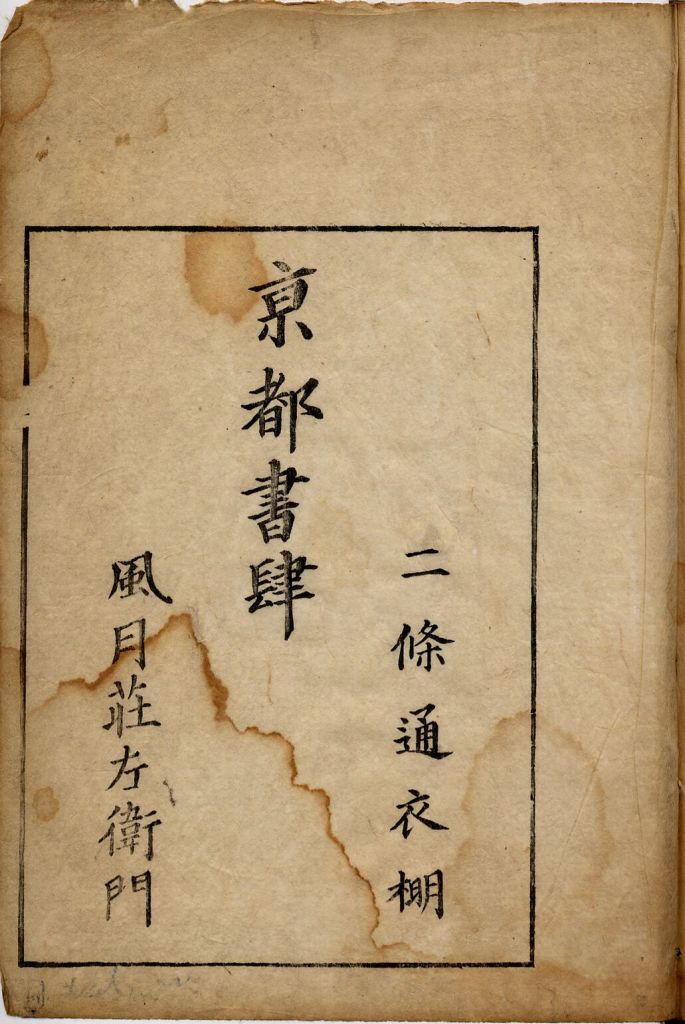 二條通衣棚
京都書肆
風月莊左衛門